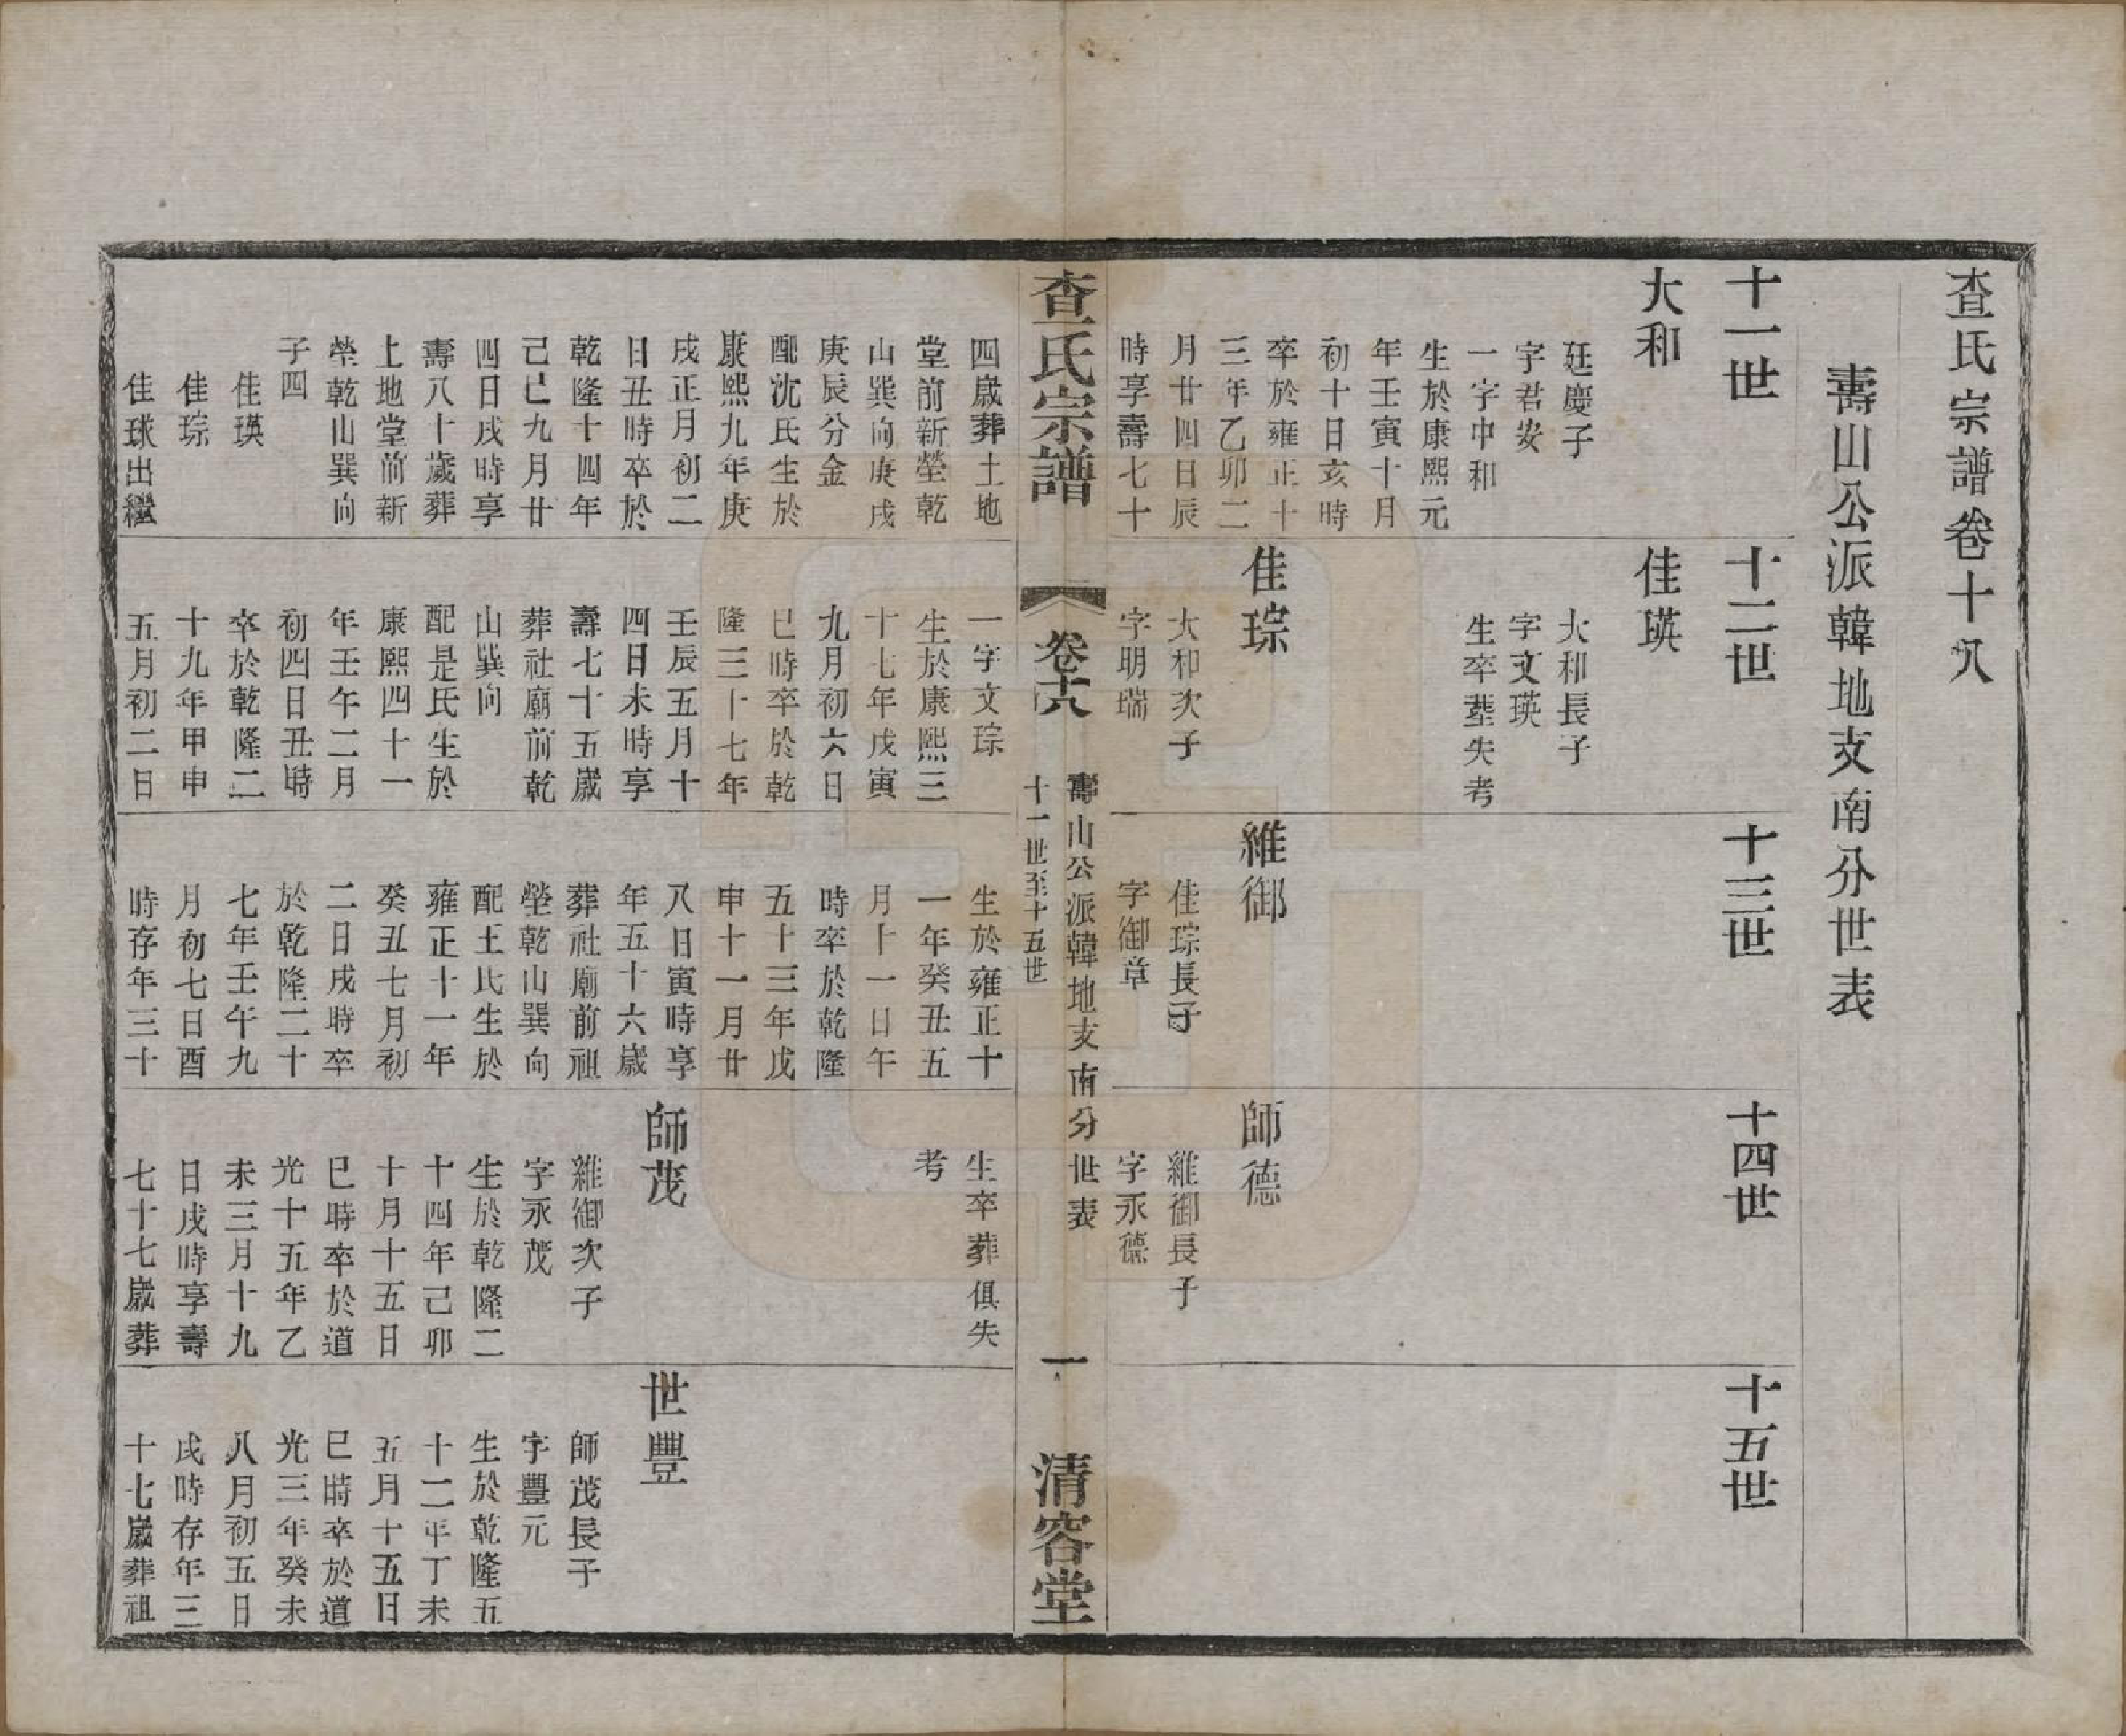 查氏宗譜卷十八
壽山公派韓地支南分世表
十一世
十二世
十三世
十四世
十五世
大和
廷慶子
字君安
一字中和
生於康熙元
年壬寅十月
初十日亥時
卒於雍正十
三年乙卯二
月廿四日辰
時享壽七十
四歲葬土地
堂前新塋乾
山巽向庚戌
庚辰分金
配沈氏生於
康熙九年庚
戌正月初二
日丑時卒於
乾隆十四年
己巳九月廿
四日戌時享
壽八十歲葬
土地堂前新
塋乾山巽向
子四
佳瑛
佳琮
佳球出繼
佳瑛
大和長子
字文瑛
生卒塟失考
佳琮
大和次子
字明瑞
一字文琮
生於康熙三
十七年戊寅
九月初六日
巳時卒於乾
隆三十七年
壬辰五月十
四日未時享
壽七十五歲
葬社廟前乾
山巽向
配是氏生於
康熙四十一
年壬午二月
初四日丑時
卒於乾隆二
十九年甲申
五月初二日
維御
佳琮長子
字御章
生於雍正十
一年癸丑五
月十一日午
時卒於乾隆
五十三年戊
申十一月廿
八日寅時享
年五十六歲
葬社廟前祖
塋乾山巽向
配王氏生於
雍正十一年
癸丑七月初
二日戌時卒
於乾隆二十
七年壬午九
月初七日酉
時存年三十
師德
維御長子
字永德
生卒葬俱失
考
師茂
維御次子
字永茂
生於乾隆二
十四年己卯
十月十五日
巳時卒於道
光十五年乙
未三月十九
日戌時享壽
七十七歲葬
世豐
師茂長子
字豐元
生於乾隆五
十二年丁未
五月十五日
巳時卒於道
光三年癸未
八月初五日
戌時存年三
十七歲葬祖
查氏宗譜
卷十八
壽山公派韓地支南分世表
十一世至十五世
一
清容堂